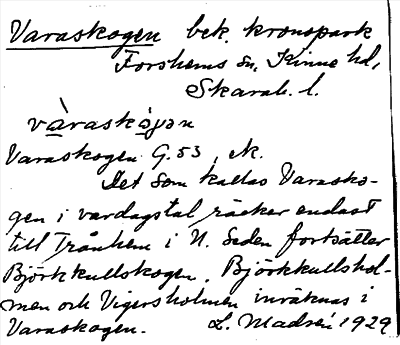 Varaskogen bek. kronopark
Forshems sn, Kinne hd,
Skarab. l.
vàraskọγən
Varaskogen G. 53, Ek.
Det som kallas Varasko-
gen i vardagstal räcker endast
till Trånhem i N. Sedan fortsätter
Björkkullskogen. Björkkullshol-
men och Vigersholmen inräknas i
Varaskogen. L. Madsén 1929